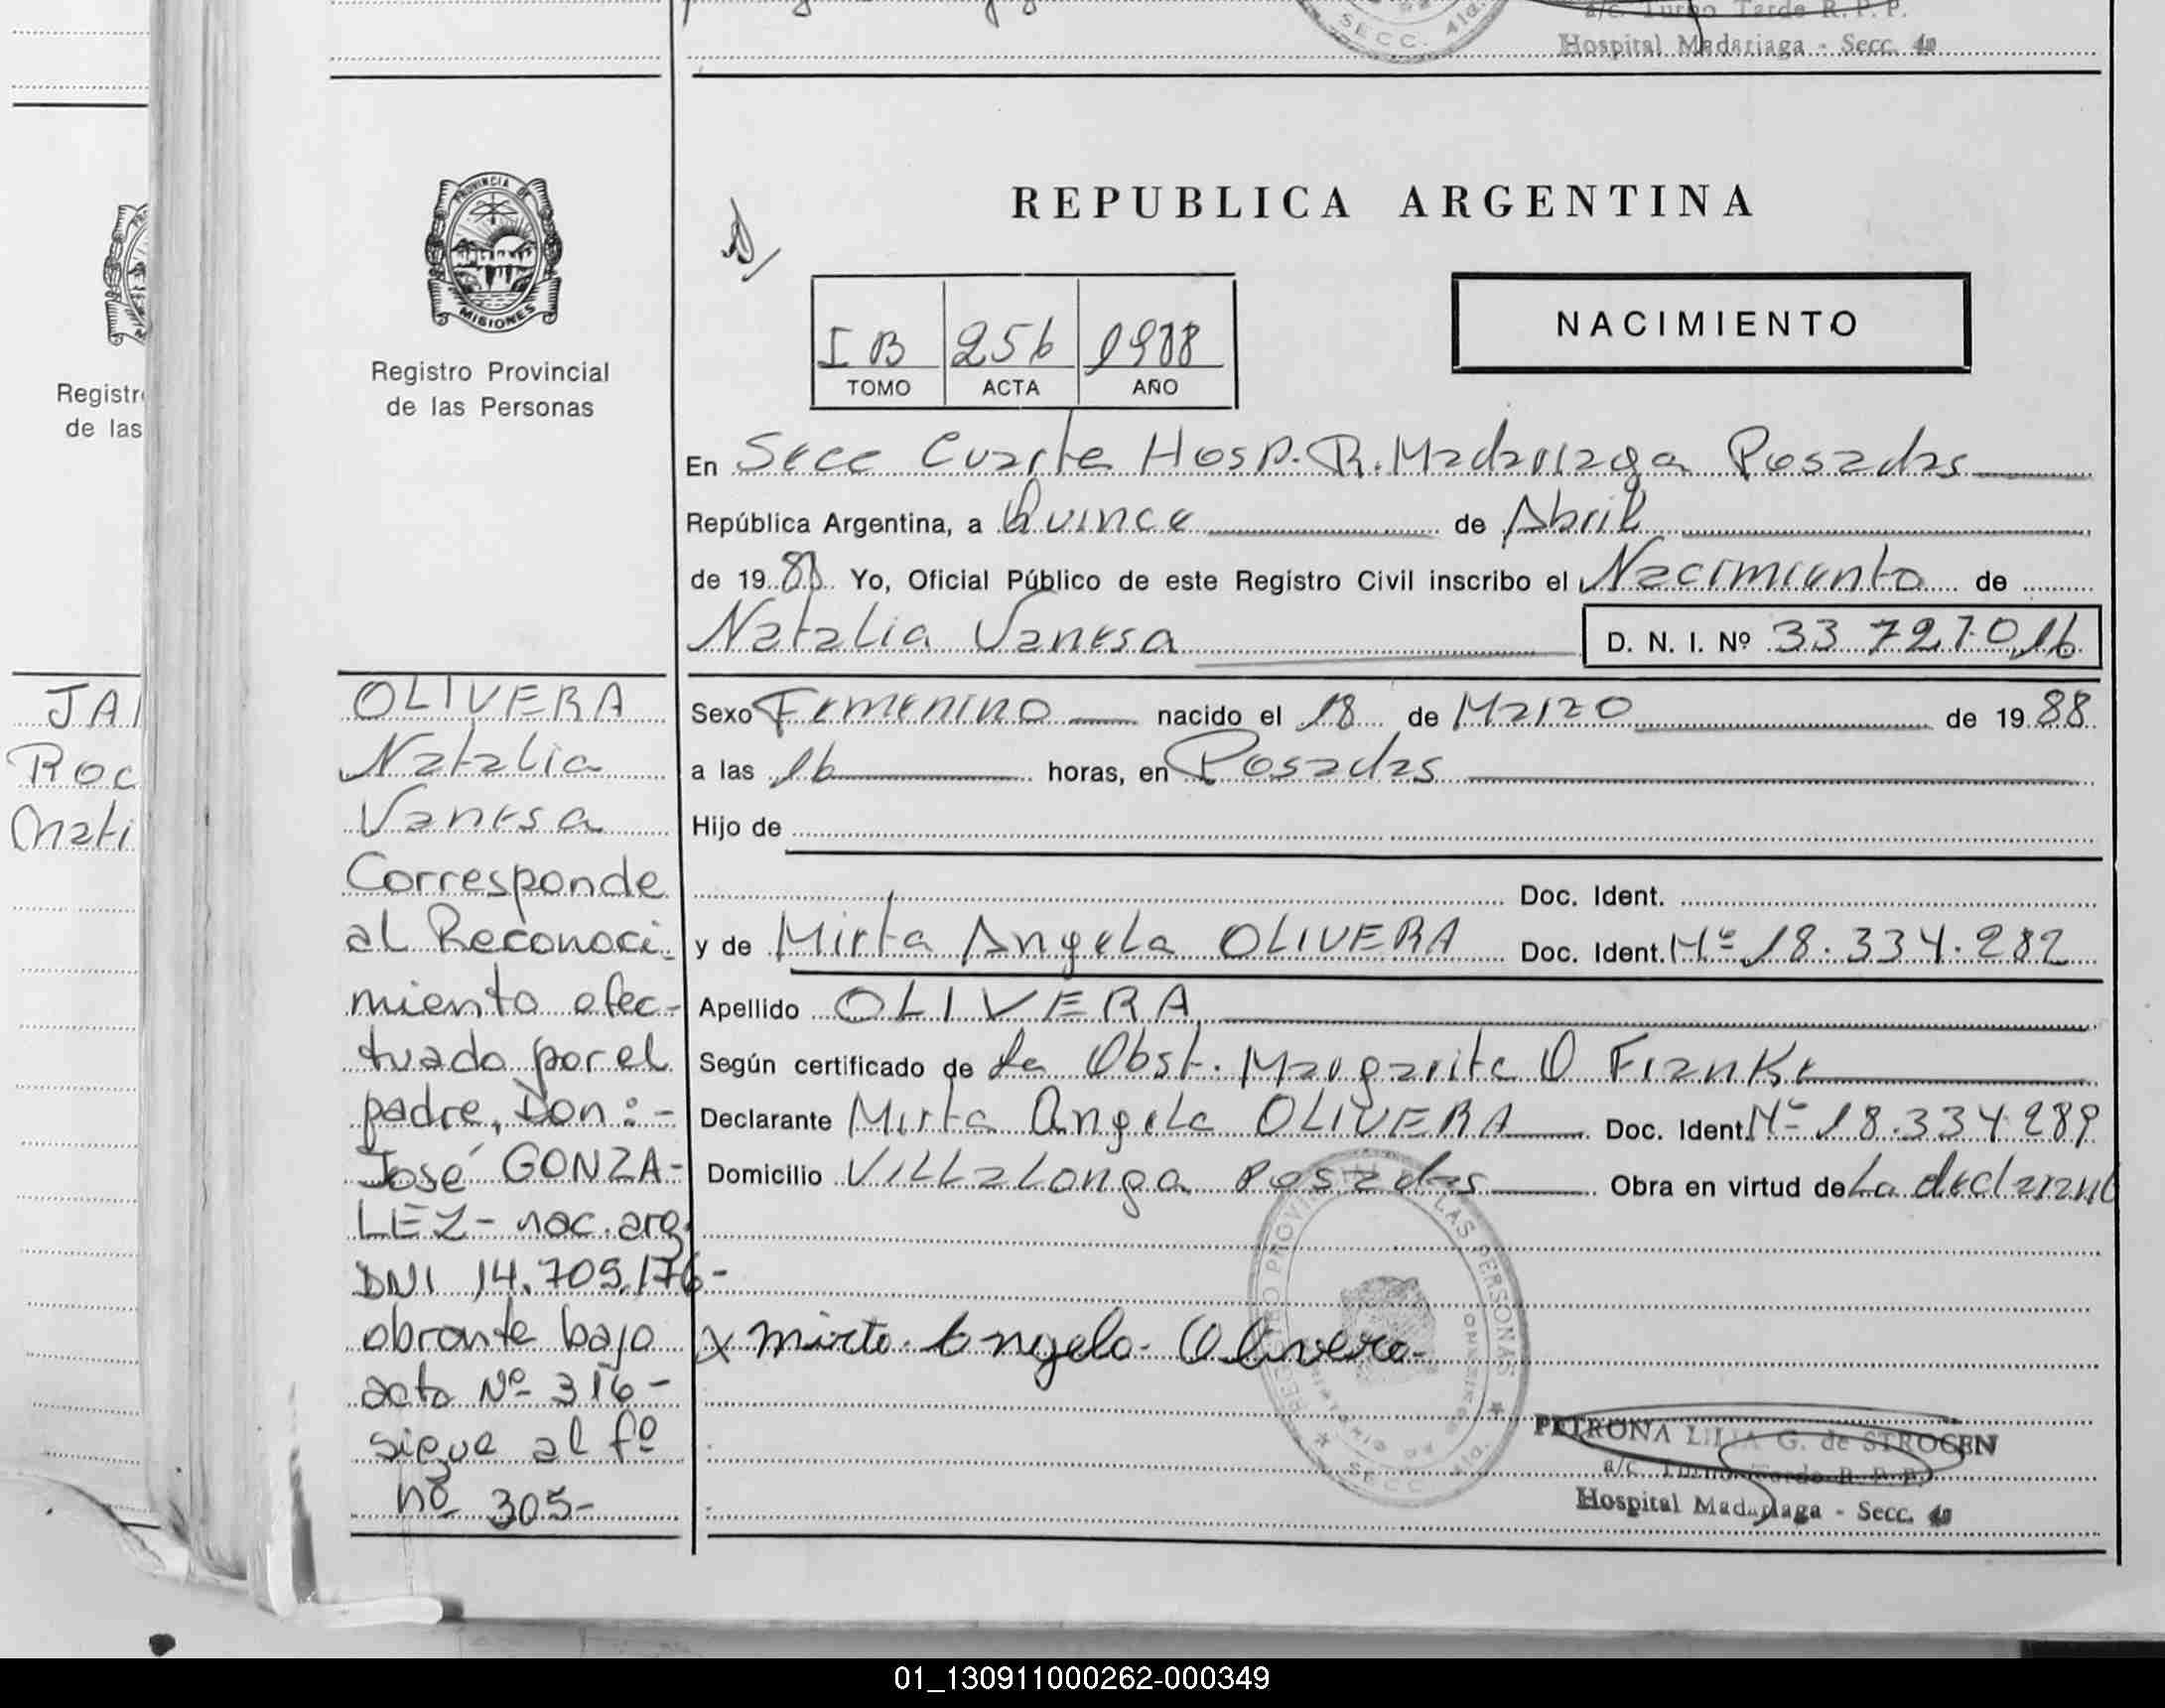 a/c. Turno Tarde R. P. P.
SECC. 4ta.
Hospital Madariaga - Secc. 4a
PROVINCIA DE
MISIONES
Registro Provincial
de las Personas
REPUBLICA ARGENTINA
NACIMIENTO
I B 256 1988
TOMO ACTA AÑO
Registr
de las
En Secc Cuarta Hosp. R. Madariaga Posadas
República Argentina, a Quince de Abril
de 19 88 Yo, Oficial Público de este Registro Civil inscribo el Nacimiento de
Natalia Vanesa D. N. I. Nº 33 727.016
JA
Roc
Mati
OLIVERA
Natalia
Vanesa
Corresponde
al Reconoci-
miento efec-
tuado por el
padre, Don:-
José GONZA-
LEZ - nac. arg.
DNI 14.709.176-
obrante bajo
acta Nº 316-
sigue al fº
nº 305-
Sexo Femenino nacido el 18 de Marzo de 19 88
a las 16 horas, en Posadas
Hijo de
Doc. Ident.
y de Mirta Angela OLIVERA Doc. Ident. Nº 18.334.282
Apellido OLIVERA
Según certificado de la Obst. Margarita O Franke
Declarante Mirta Angela OLIVERA Doc. Ident. Nº 18.334.289
Domicilio Villalonga Posadas Obra en virtud de La declarant
REGISTRO PROVINCIAL DE LAS PERSONAS
x Mirta Angela Olivera
PETRONA LILIA G. de STROGEN
a/c. Turno Tarde R. P. P.
Hospital Madariaga - Secc. 4a
01_130911000262-000349